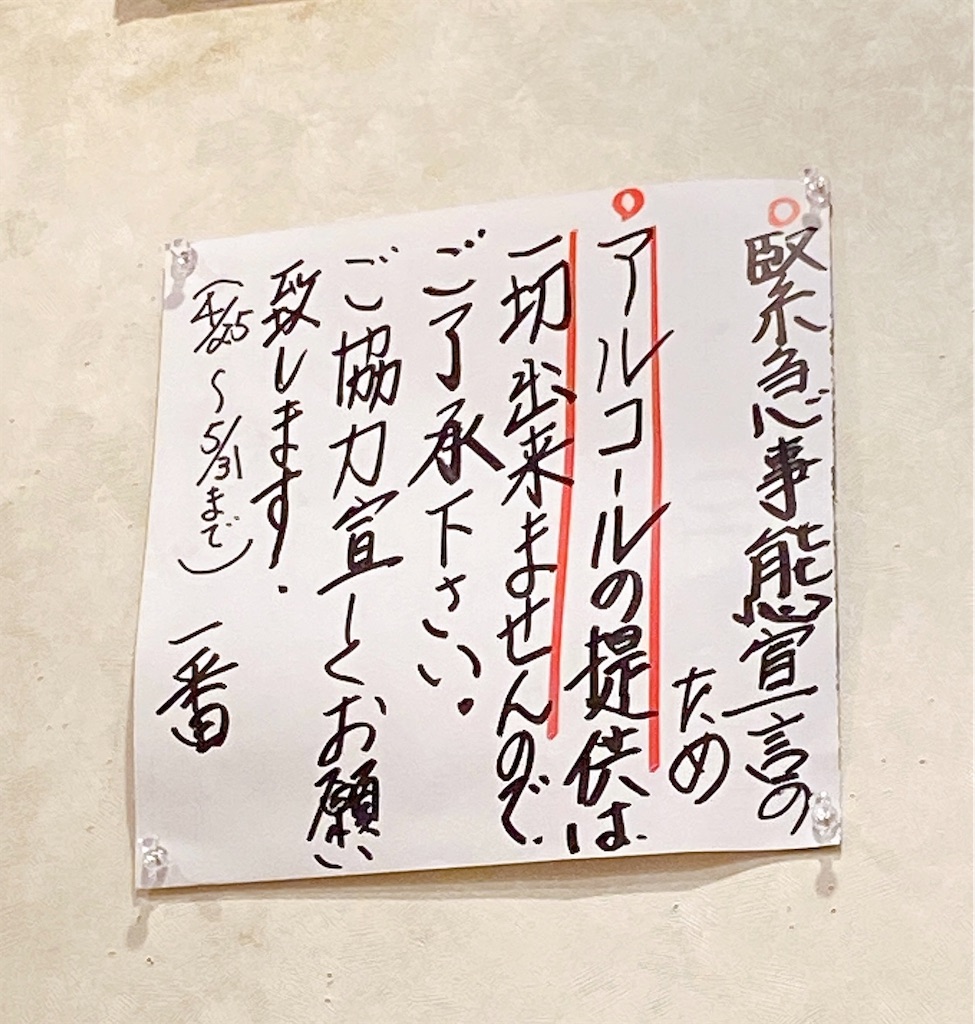 緊急事態宣言の
ため
アルコールの提供は
一切出来ませんので
ご了承下さい。
ご協力宜しくお願い
致します.
(4/25〜5/31まで)
一番